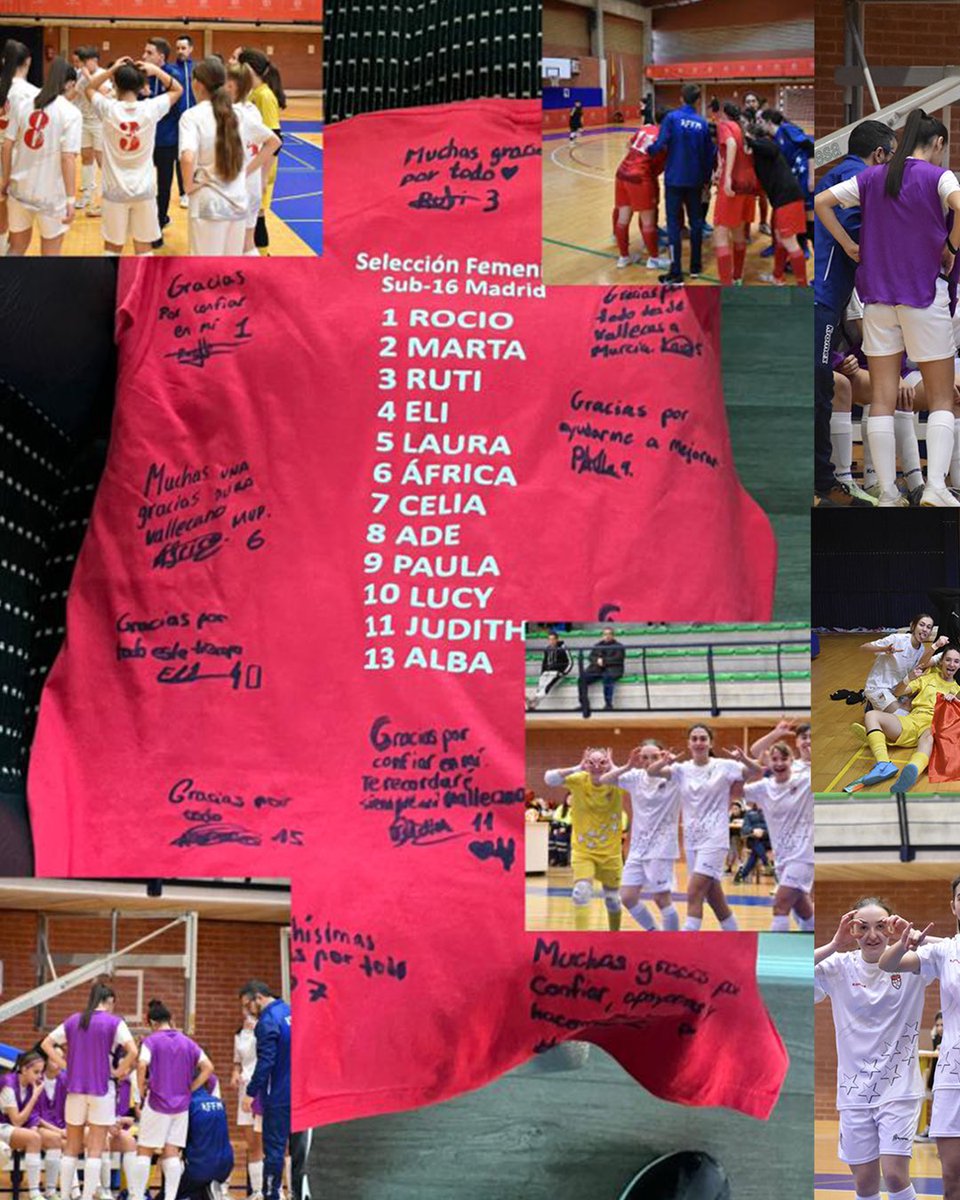 8
3
Muchas gracia
por todo
Ruti 3
AFFM
Selección Femeni
Sub-16 Madrid
1 ROCIO
2 MARTA
3 RUTI
4 ELI
5 LAURA
6 ÁFRICA
7 CELIA
8 ADE
9 PAULA
10 LUCY
11 JUDITH
13 ALBA
Gracias
Por confiar
en mí 1
Gracias por
todo desde
Vallecas a
Murcia.
Gracias por
ayudarme a mejorar
PAULA 9.
Muchas
gracias
Vallecano MVP.
6
Gracias por
todo este tiempo
Gracias por
todo
15
Gracias por
confiar en mí.
Te recordaré
siempre mi vallecano
11
hísimas
s por todo
7
Muchas gracias por
confiar, apoyarme y
RFFM